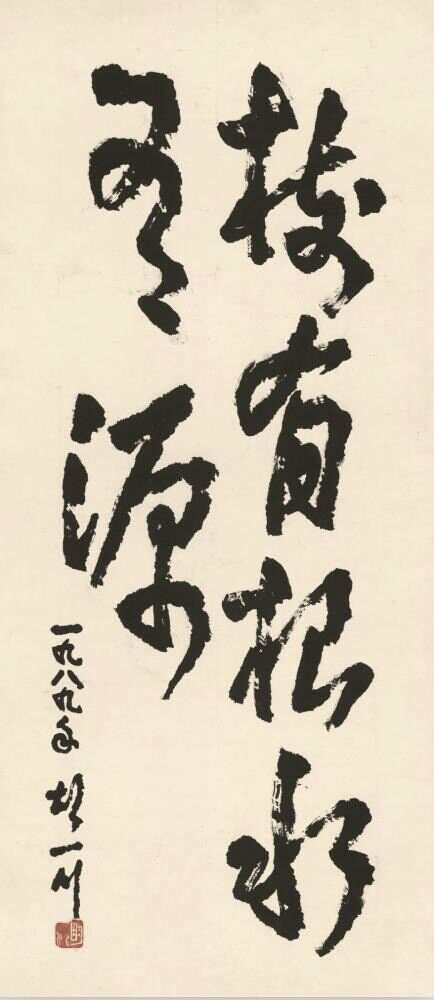 树有根水
有源
一九八九年 胡一川